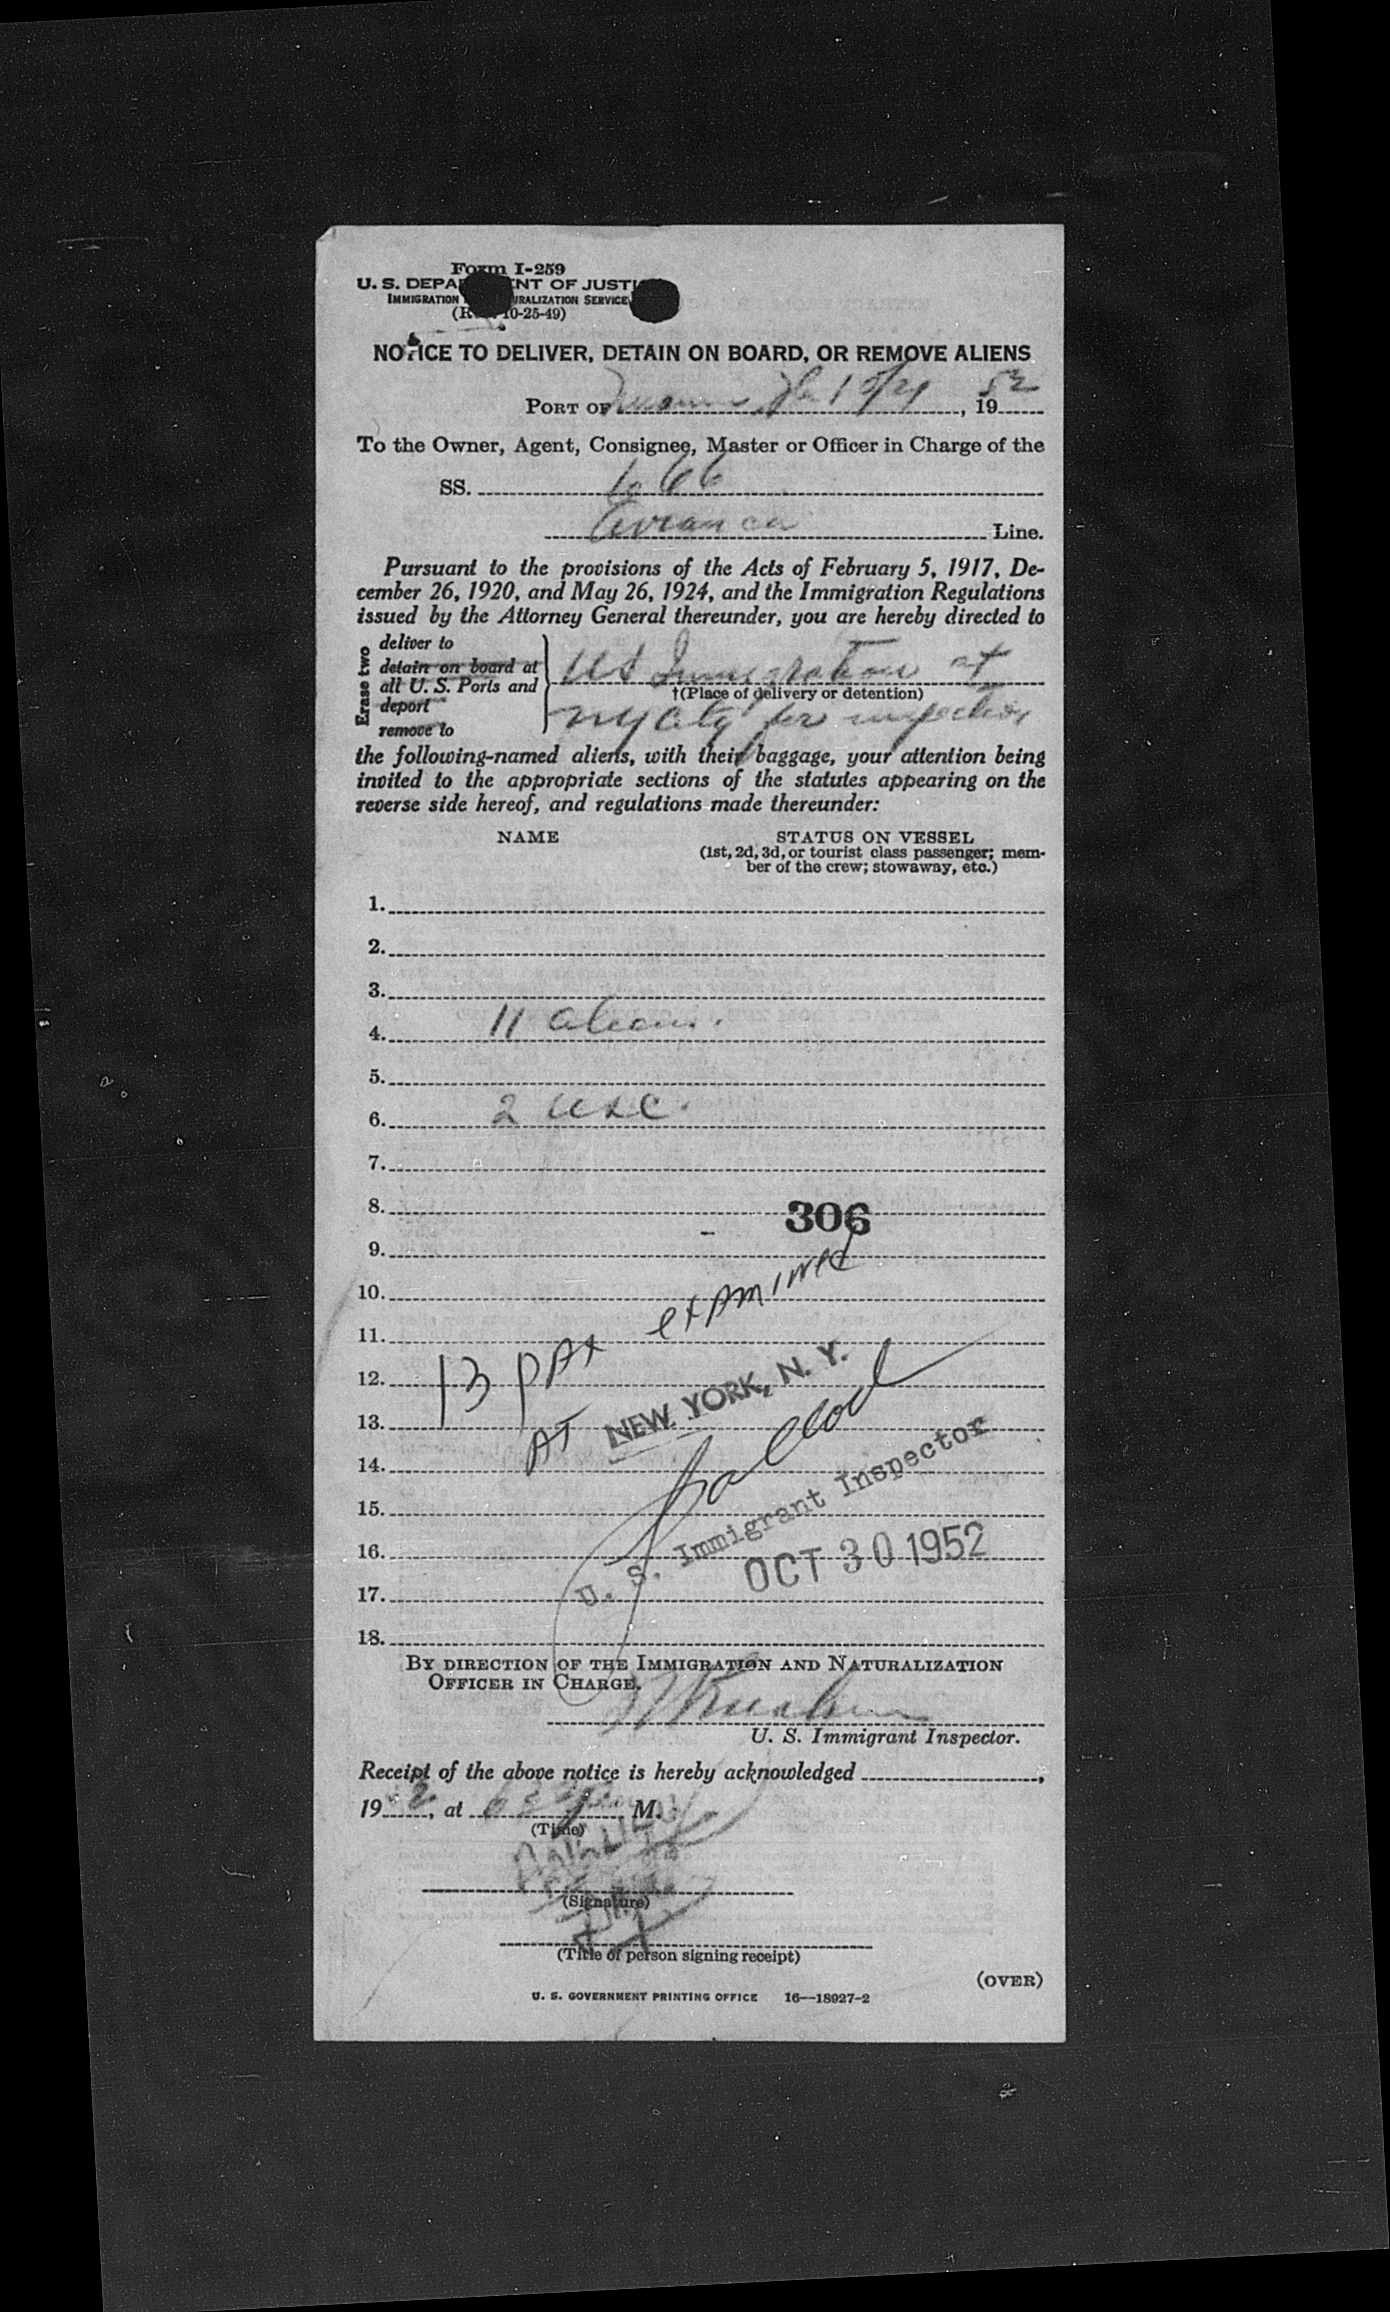 Form I-259
U. S. DEPA ENT OF JUSTI
IMMIGRATION URALIZATION SERVICE
(R 10-25-49)
NOTICE TO DELIVER, DETAIN ON BOARD, OR REMOVE ALIENS
PORT OF , 19 52
To the Owner, Agent, Consignee, Master or Officer in Charge of the
SS.
Avianca Line.
Pursuant to the provisions of the Acts of February 5, 1917, De-
cember 26, 1920, and May 26, 1924, and the Immigration Regulations
issued by the Attorney General thereunder, you are hereby directed to
Erase two
deliver to
detain on board at
all U. S. Ports and
deport
remove to
US Immigration at
†(Place of delivery or detention)
NY City for inspection
the following-named aliens, with their baggage, your attention being
invited to the appropriate sections of the statutes appearing on the
reverse side hereof, and regulations made thereunder:
NAME STATUS ON VESSEL
(1st, 2d, 3d, or tourist class passenger; mem-
ber of the crew; stowaway, etc.)
1.
2.
3.
4. 11 aliens.
5.
6. 2 USC.
7.
8. 306
9.
10.
11.
12. 13 PAX examined
13. AT NEW YORK, N. Y.
14.
15.
16. U. S. Immigrant Inspector
OCT 30 1952
17.
18.
BY DIRECTION OF THE IMMIGRATION AND NATURALIZATION
OFFICER IN CHARGE.
U. S. Immigrant Inspector.
Receipt of the above notice is hereby acknowledged ,
19 , at M.
(Time)
(Signature)
(Title of person signing receipt)
(OVER)
U. S. GOVERNMENT PRINTING OFFICE 16—18927-2